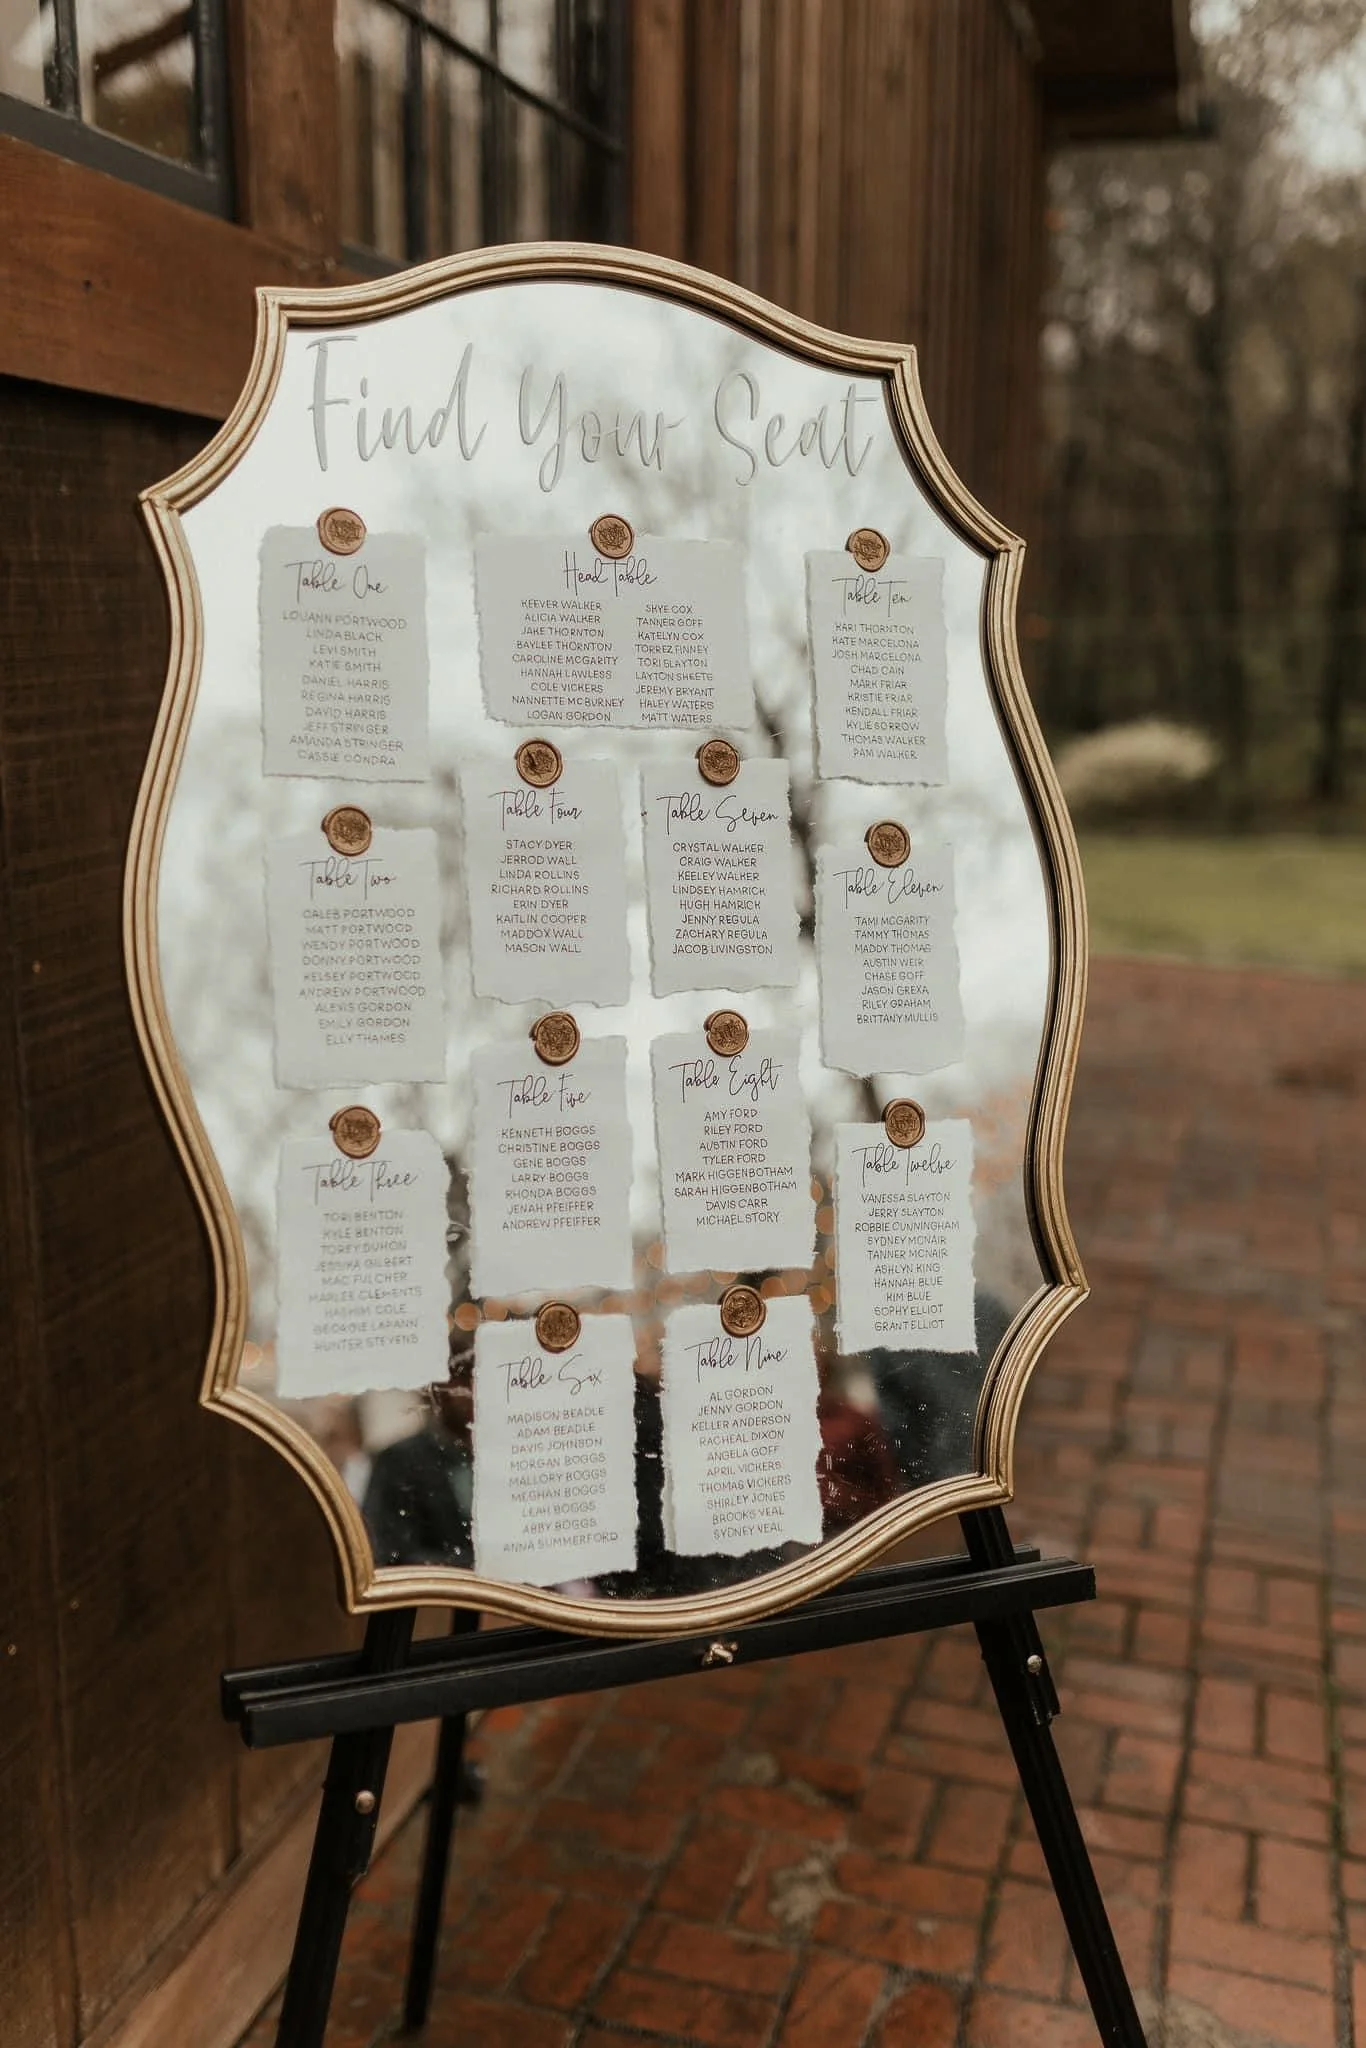 Find Your Seat
Table One
LOUANN PORTWOOD
LINDA BLACK
LEVI SMITH
KATIE SMITH
DANIEL HARRIS
REGINA HARRIS
DAVID HARRIS
JEFF STRINGER
AMANDA STRINGER
CASSIE CONDRA
Table Two
CALEB PORTWOOD
MATT PORTWOOD
WENDY PORTWOOD
DONNY PORTWOOD
KELSEY PORTWOOD
ANDREW PORTWOOD
ALEXIS GORDON
EMILY GORDON
ELLY THAMES
Table Three
TORI BENTON
KYLE BENTON
TOREY DUHON
JESSIKA GILBERT
MAC FULCHER
MARLEE CLEMENTS
HASHIM COLE
GEORGIE LAPANN
HUNTER STEVENS
Head Table
KEEVER WALKER
ALICIA WALKER
JAKE THORNTON
BAYLEE THORNTON
CAROLINE MCGARITY
HANNAH LAWLESS
COLE VICKERS
NANNETTE MCBURNEY
LOGAN GORDON
SKYE COX
TANNER GOFF
KATELYN COX
TORREZ FINNEY
TORI SLAYTON
LAYTON SHEETS
JEREMY BRYANT
HALEY WATERS
MATT WATERS
Table Four
STACY DYER
JERROD WALL
LINDA ROLLINS
RICHARD ROLLINS
ERIN DYER
KAITLIN COOPER
MADDOX WALL
MASON WALL
Table Five
KENNETH BOGGS
CHRISTINE BOGGS
GENE BOGGS
LARRY BOGGS
RHONDA BOGGS
JENAH PFEIFFER
ANDREW PFEIFFER
Table Six
MADISON BEADLE
ADAM BEADLE
DAVIS JOHNSON
MORGAN BOGGS
MALLORY BOGGS
MEGHAN BOGGS
LEAH BOGGS
ABBY BOGGS
ANNA SUMMERFORD
Table Seven
CRYSTAL WALKER
CRAIG WALKER
KEELEY WALKER
LINDSEY HAMRICK
HUGH HAMRICK
JENNY REGULA
ZACHARY REGULA
JACOB LIVINGSTON
Table Eight
AMY FORD
RILEY FORD
AUSTIN FORD
TYLER FORD
MARK HIGGENBOTHAM
SARAH HIGGENBOTHAM
DAVIS CARR
MICHAEL STORY
Table Nine
AL GORDON
JENNY GORDON
KELLER ANDERSON
RACHEAL DIXON
ANGELA GOFF
APRIL VICKERS
THOMAS VICKERS
SHIRLEY JONES
BROOKS VEAL
SYDNEY VEAL
Table Ten
KARI THORNTON
KATE MARCELONA
JOSH MARCELONA
CHAD CAIN
MARK FRIAR
KRISTIE FRIAR
KENDALL FRIAR
KYLIE SORROW
THOMAS WALKER
PAM WALKER
Table Eleven
TAMI MCGARITY
TAMMY THOMAS
MADDY THOMAS
AUSTIN WEIR
CHASE GOFF
JASON GREXA
RILEY GRAHAM
BRITTANY MULLIS
Table Twelve
VANESSA SLAYTON
JERRY SLAYTON
ROBBIE CUNNINGHAM
SYDNEY MCNAIR
TANNER MCNAIR
ASHLYN KING
HANNAH BLUE
KIM BLUE
SOPHY ELLIOT
GRANT ELLIOT